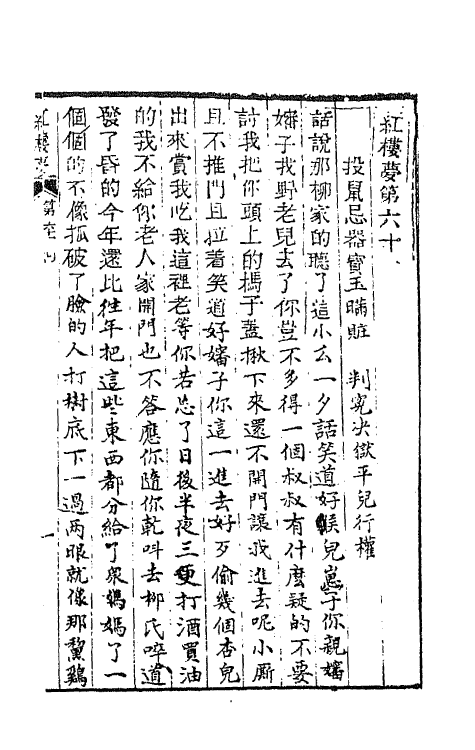 紅樓夢第六十
投鼠忌器寳玉瞞賍　判寃决獄平兒行權
話說那柳家的聽了這小么一夕話笑道好猴兒崽子你親嬸
嬸子找野老兒去了你豈不多得一個叔叔有什麼疑的不要
討我把你頭上的榪子蓋揪下來還不開門讓我進去呢小厮
且不推門且拉着笑道好嬸子你這一進去好歹偷幾個杏兒
出來賞我吃我這裡老等你若忘了日後半夜三更打酒買油
的我不給你老人家開門也不答應你隨你乾呌去栁氏啐道
發了昏的今年還比徃年把這些東西都分給了衆媽媽了一
個個的不像抓破了臉的人打樹底下一過两眼就像那黧鷄
紅樓夢
第六十
一